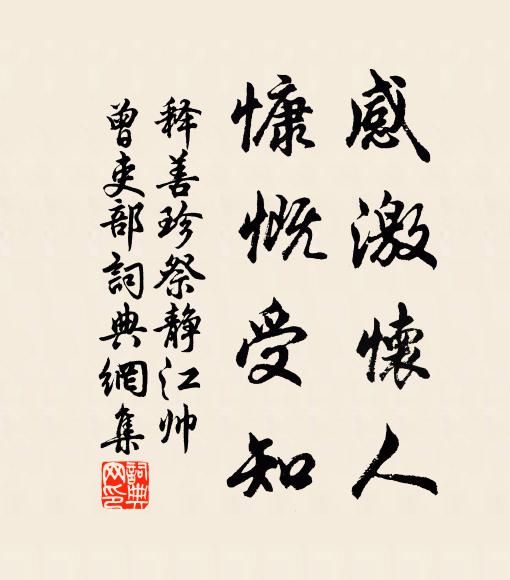 感激懷人
慷慨受知
釋善珍祭静江帅
曾吏部詞典網集
詞典网印